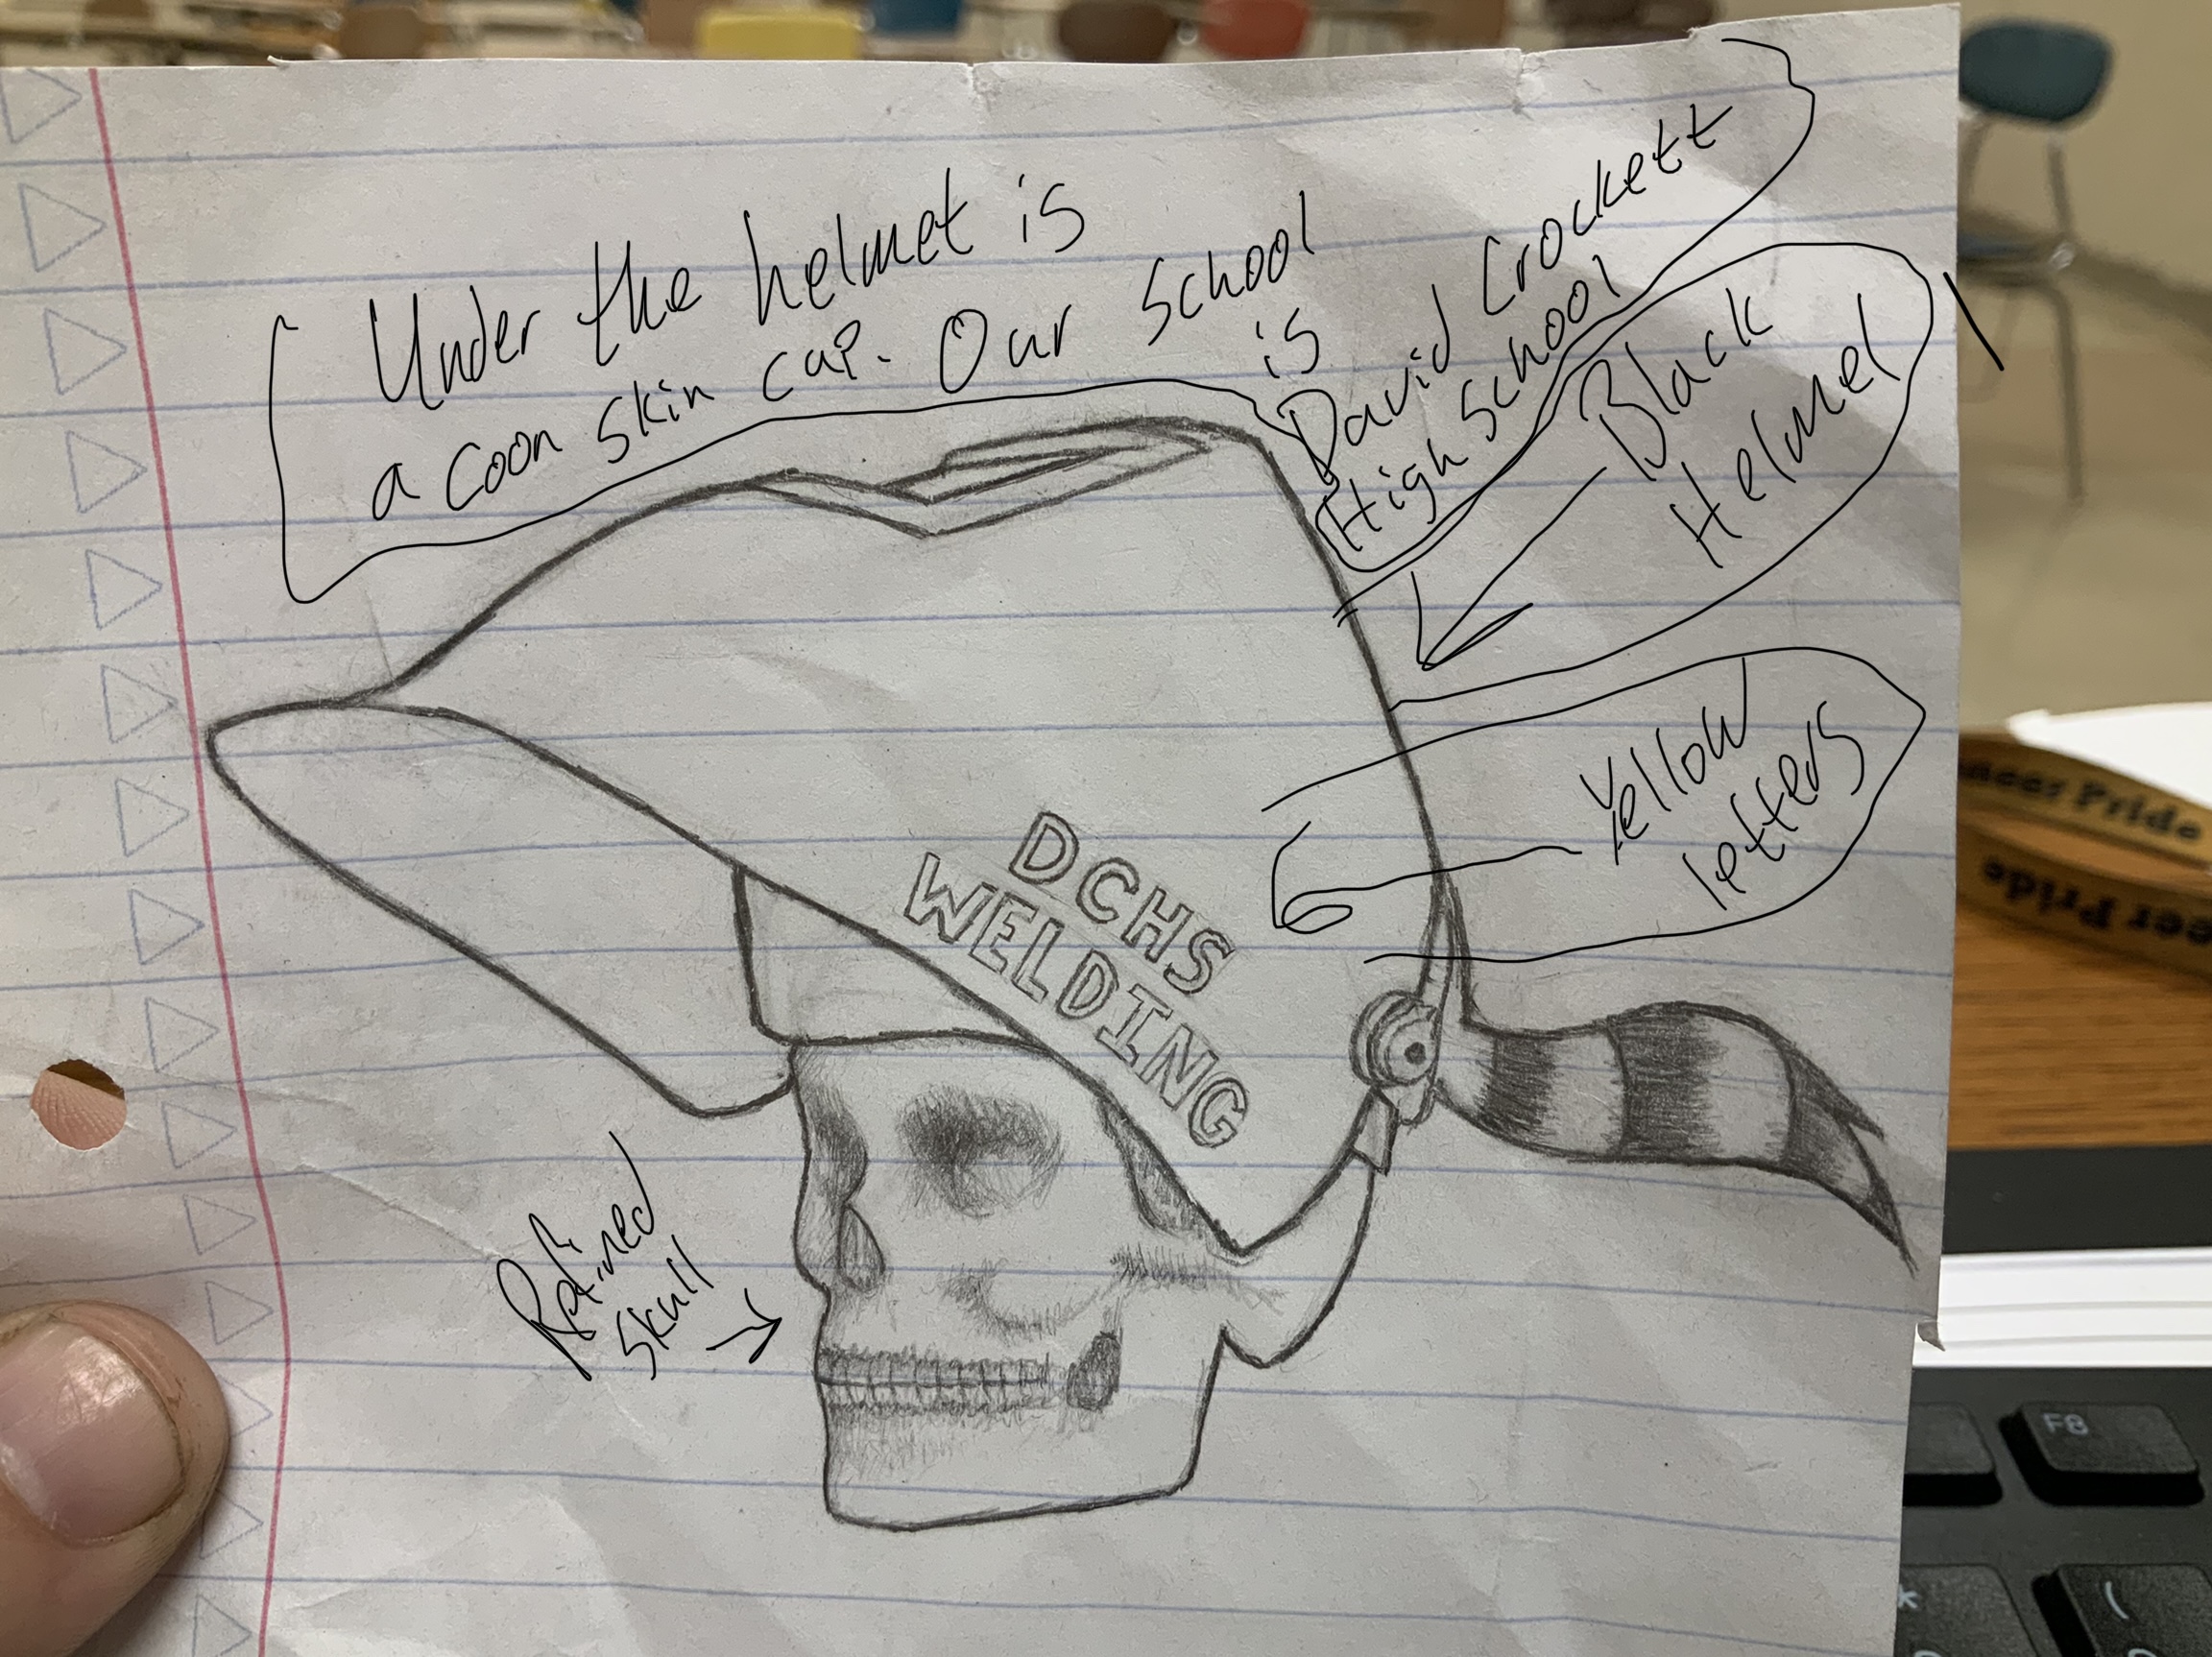 Under the helmet is
a coon skin cap. Our School
is
David Crockett
High School
Black
Helmet
Yellow
letters
DCHS
WELDING
Refined
Skull
neer Pride
eer Pride
F8
*
(